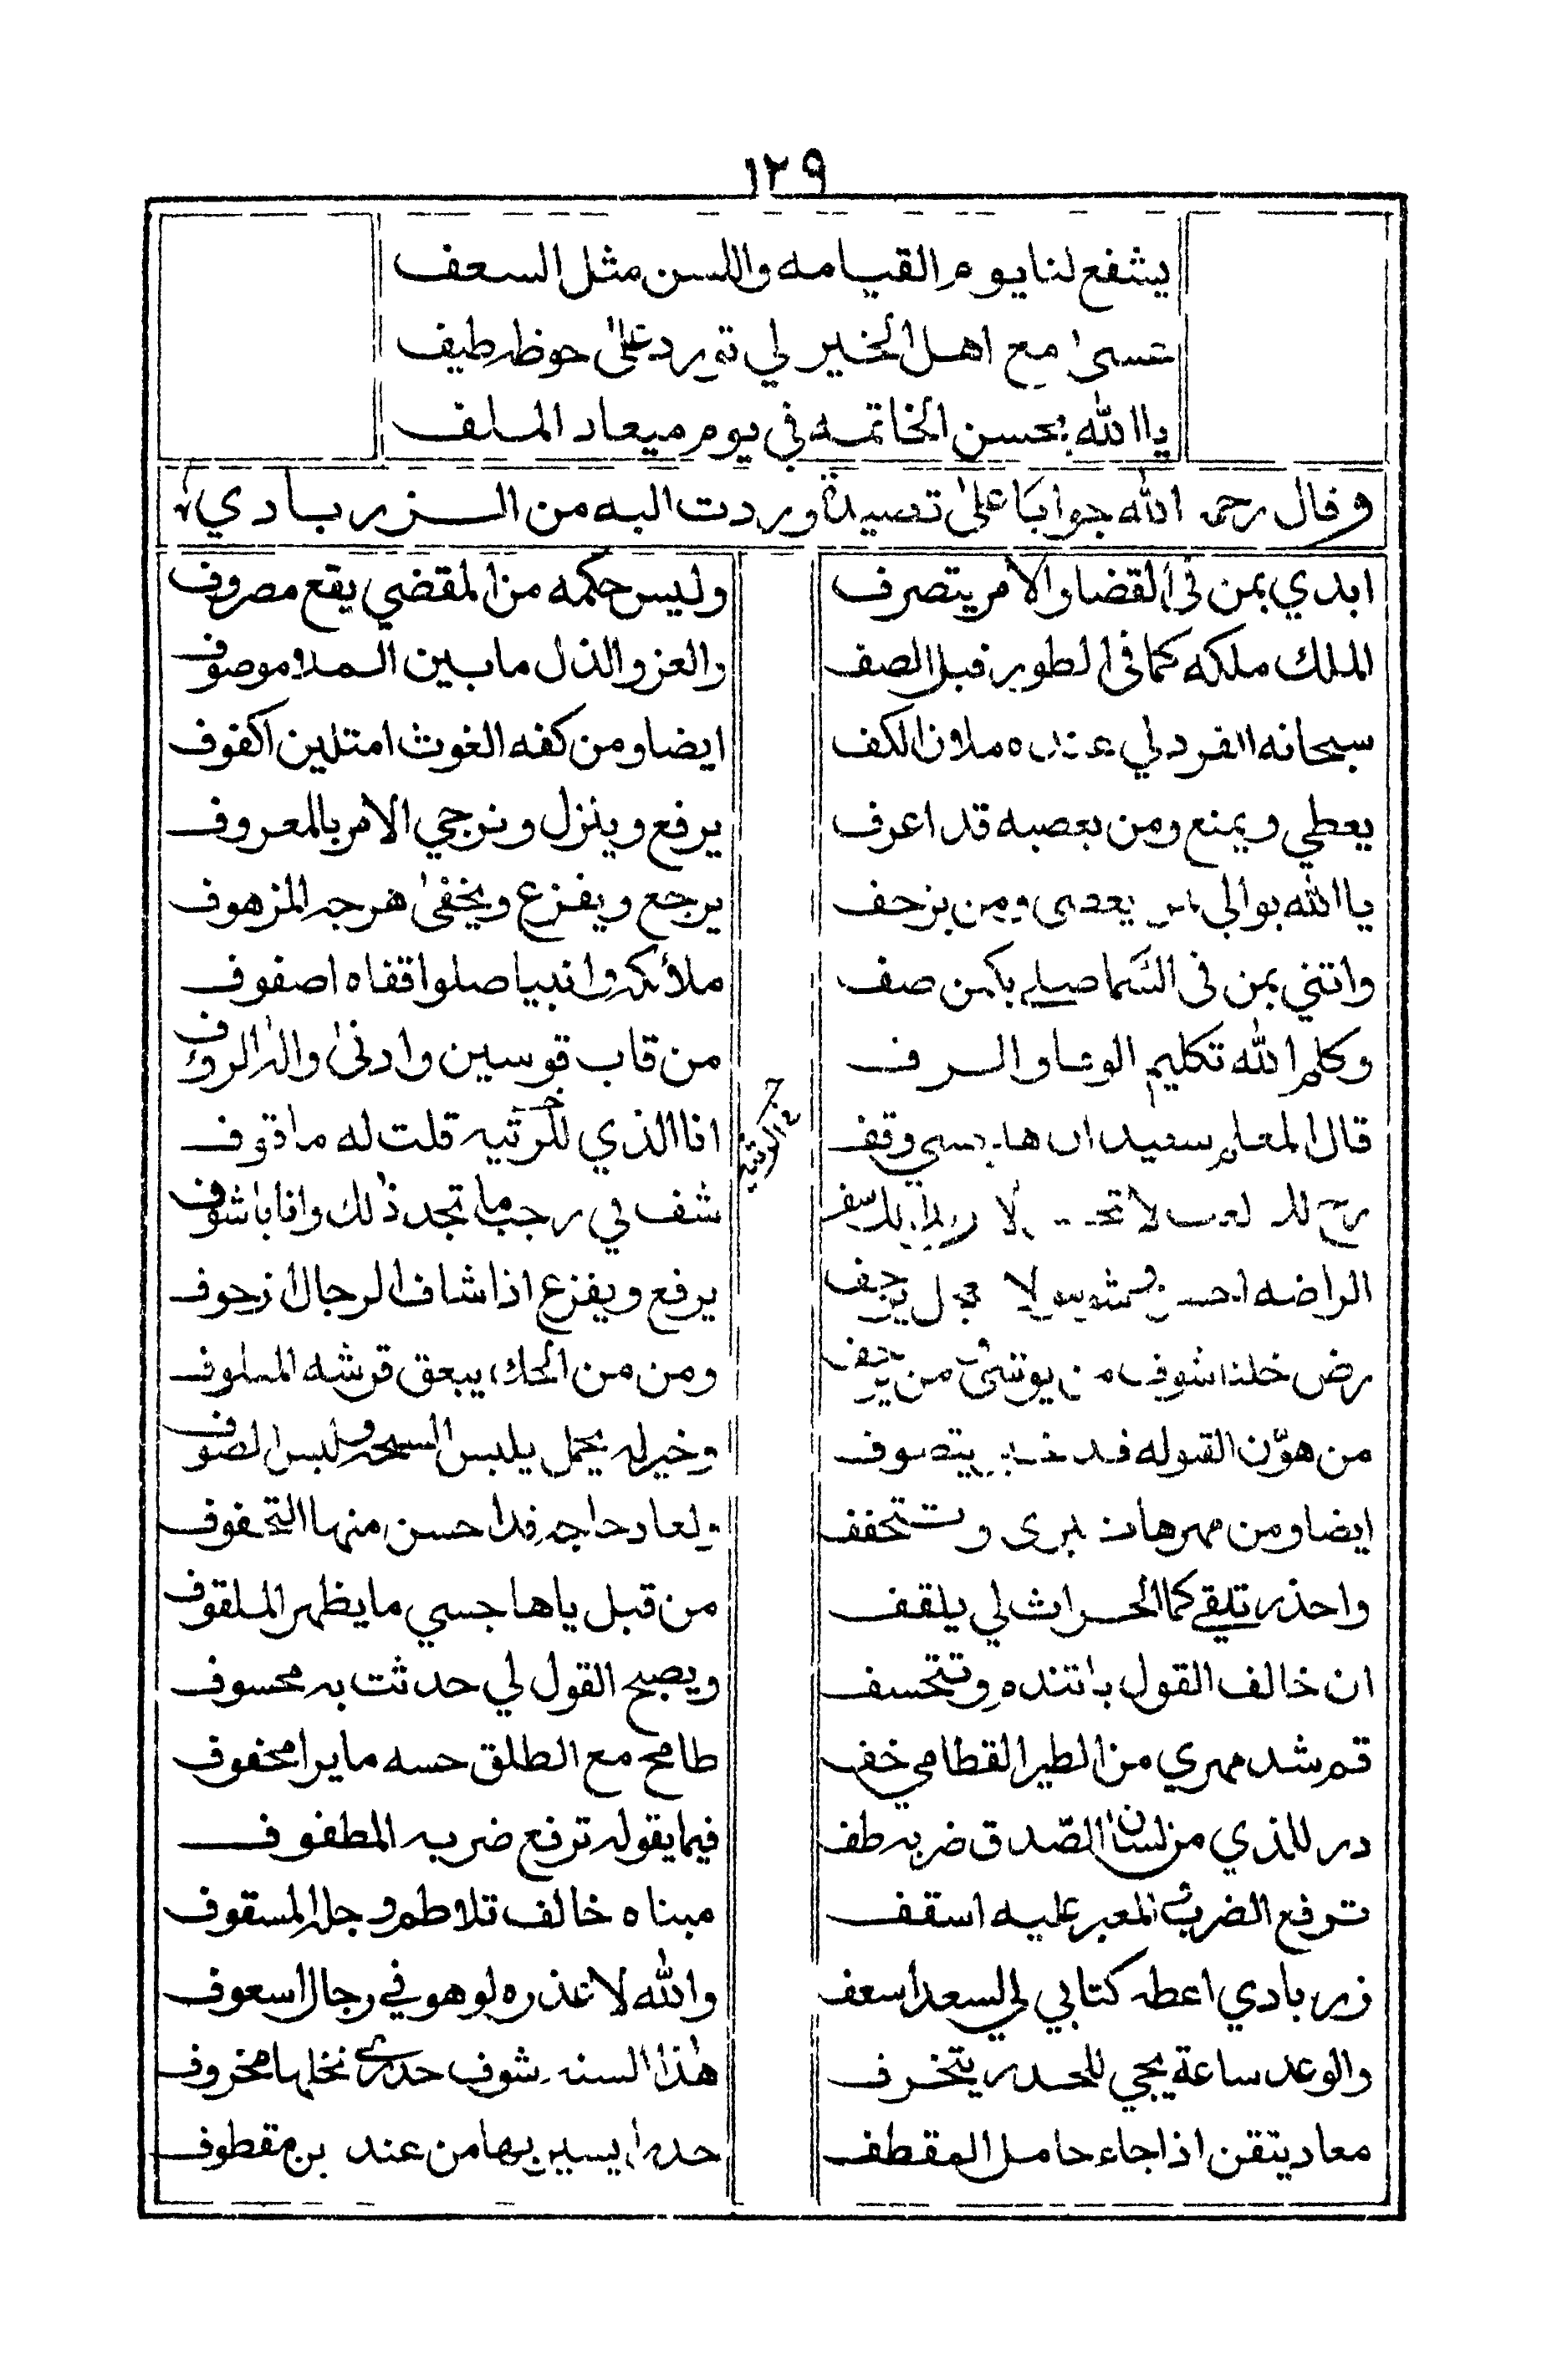 ١٢٩
يشفع لنا يوم القيامه واللسن مثل السعف
عسى مع اهل الخير لي تورد على حوظه طيف
يا الله بحسن الخاتمه في يوم ميعاد الملف
وقال رحمه الله جوابا على قصيدة وردت اليه من الزربادي
ابدي بمن في القضا والامر يتصرف وليس حكمه من المقضي يقع مصروف
الملك ملكه كما في الطور قبل الصف والعز والذل ما بين الملا موصوف
سبحانه الفرد لي عنده ملان الكف ايضا ومن كفه الغوث امتلين اكفوف
يعطي ويمنع ومن يعصيه قد اعرف يرفع وينزل ونرجي الامر بالمعروف
يا الله بوالي من يعصى ومن يزحف يرجع ويفزع ويخفى هرجه المزهوف
واثني بمن في السما صلى بكمن صف ملائكه وانبيا صلوا قفاه اصفوف
وكلم الله تكليم الوفا والسرف من قاب قوسين وادنى واله الروف
قال المعلم سعيد ان هاجسي وقف انا الذي للمرتيه قلت له ما قوف
شف لي رجب ما تجدد ذلك وانا باشوف
الراضه احسن يرجف يرفع ويفزع اذا شاف الرجال ازحوف
رض خلنا شوف من يوتني من يرجف ومن من الحك يبعق قرشه الملوف
من هوّن القوله قد يتصوف وخير له يحمل يلبس السبحه ولبس الصوف
ايضا ومن مهرهات تبرى وتستخفف ولعاد حاجه فدا حسن منها التخفوف
واحذر تلقي كما الحراث لي يلقف من قبل يا هاجسي ما يظهر الملقوف
ان خالف القول باتنده وتتحسف ويصبح القول لي حدثت به محسوف
قم شد مهري من الطير القطامي خف طامح مع الطلق حسه ما يرا مخفوف
در للذي من لسان الصدق ضربه طف فيما يقوله ترفع ضربه المطفوف
ترفع الضرب المعبر عليه اسقف مبناه خالف تلاطم وجله المسقوف
زربادي اعطه كتابي لي السعد اسعف والله لا تعذره لو هو في رجال اسعوف
والوعد ساعة يجي للحدر يتخرف هذا السنه شوف حدرى نخلها مخروف
معاد يتقن اذا جاء حامل المقطف حدرا يسير بها من عند بن مقطوف